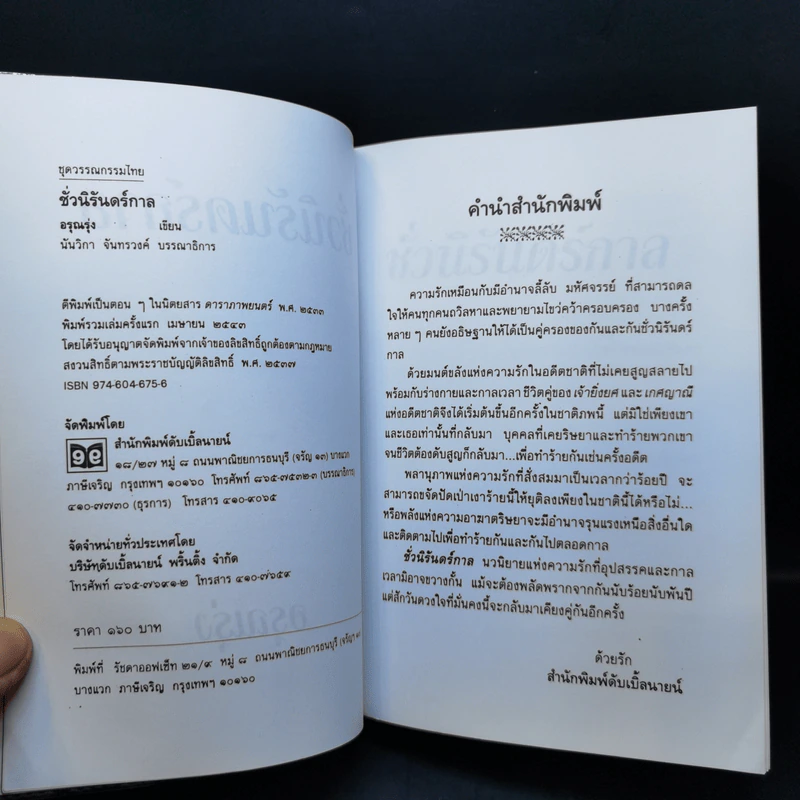 ชุดวรรณกรรมไทย
ชั่วนิรันดร์กาล
อรุณรุ่ง เขียน
นันวิกา จันทรวงค์ บรรณาธิการ
ตีพิมพ์เป็นตอน ๆ ในนิตยสาร ดาราภาพยนตร์ พ.ศ. ๒๕๓๓
พิมพ์รวมเล่มครั้งแรก เมษายน ๒๕๔๓
โดยได้รับอนุญาตจัดพิมพ์จากเจ้าของลิขสิทธิ์ถูกต้องตามกฎหมาย
สงวนสิทธิ์ตามพระราชบัญญัติลิขสิทธิ์ พ.ศ. ๒๕๓๗
ISBN 974-604-675-6
จัดพิมพ์โดย
สำนักพิมพ์ดับเบิ้ลนายน์
๑๘/๒๗ หมู่ ๘ ถนนพาณิชยการธนบุรี (จรัญ ๑๓) บางแวก
ภาษีเจริญ กรุงเทพฯ ๑๐๑๖๐ โทรศัพท์ ๘๖๕-๗๕๓๒-๓ (บรรณาธิการ)
๔๑๐-๗๗๓๐ (ธุรการ) โทรสาร ๔๑๐-๙๐๖๕
จัดจำหน่ายทั่วประเทศโดย
บริษัทดับเบิ้ลนายน์ พริ้นติ้ง จำกัด
โทรศัพท์ ๘๖๕-๗๖๙๑-๒ โทรสาร ๔๑๐-๗๖๕๙
ราคา ๑๖๐ บาท
พิมพ์ที่ รัชดาออฟเซ็ท ๒๑/๙ หมู่ ๘ ถนนพาณิชยการธนบุรี (จรัญ
บางแวก ภาษีเจริญ กรุงเทพฯ ๑๐๑๖๐
คำนำสำนักพิมพ์
ความรักเหมือนกับมีอำนาจลี้ลับ มหัศจรรย์ ที่สามารถดล
ใจให้คนทุกคนถวิลหาและพยายามไขว่คว้าครอบครอง บางครั้ง
หลาย ๆ คนยังอธิษฐานให้ได้เป็นคู่ครองของกันและกันชั่วนิรันดร์
กาล
ด้วยมนต์ขลังแห่งความรักในอดีตชาติที่ไม่เคยสูญสลายไป
พร้อมกับร่างกายและกาลเวลา ชีวิตคู่ของ เจ้ายิ่งยศ และ เกศญาณี
แห่งอดีตชาติจึงได้เริ่มต้นขึ้นอีกครั้งในชาติภพนี้ แต่มิใช่เพียงเขา
และเธอเท่านั้นที่กลับมา บุคคลที่เคยริษยาและทำร้ายพวกเขา
จนชีวิตต้องดับสูญก็กลับมา...เพื่อทำร้ายกันเช่นครั้งอดีต
พลานุภาพแห่งความรักที่สั่งสมมาเป็นเวลากว่าร้อยปี จะ
สามารถขจัดปัดเป่าเงาร้ายนี้ให้ยุติลงเพียงในชาตินี้ได้หรือไม่...
หรือพลังแห่งความอาฆาตริษยาจะมีอำนาจรุนแรงเหนือสิ่งอื่นใด
และติดตามไปเพื่อทำร้ายกันและกันไปตลอดกาล
ชั่วนิรันดร์กาล นวนิยายแห่งความรักที่อุปสรรคและกาล
เวลามิอาจขวางกั้น แม้จะต้องพลัดพรากจากกันนับร้อยนับพันปี
แต่สักวันดวงใจที่มั่นคงนี้จะกลับมาเคียงคู่กันอีกครั้ง
ด้วยรัก
สำนักพิมพ์ดับเบิ้ลนายน์